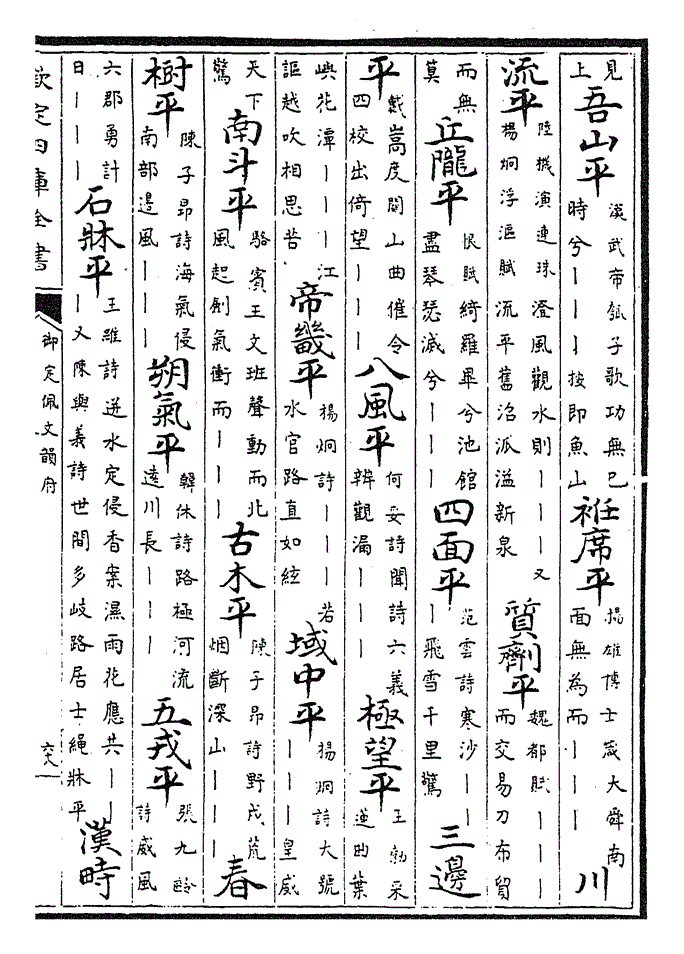 見上吾山平漢武帝瓠子歌功無已時兮｜｜｜按即魚山袵席平揚雄博士箴大舜南面無為而｜｜｜川
流平陸機演連珠澄風觀水則｜｜｜又楊炯浮漚賦流平舊沼派溢新泉質劑平魏都賦｜｜｜而交易刀布貿
而無莫丘隴平恨賦綺羅畢兮池館盡琴瑟滅兮｜｜｜四面平范雲詩寒沙｜｜｜飛雪千里驚三邊
平戴嵩度關山曲催令四校出倚望｜｜｜八風平何妥詩聞詩六義辨觀漏｜｜｜極望平王勃采蓮曲葉
嶼花潭｜｜｜江謳越吹相思苦帝畿平楊炯詩｜｜｜若水官路直如絃域中平楊炯詩大號｜｜｜皇威
天下驚南斗平駱賓王文班聲動而北風起劍氣衝而｜｜｜古木平陳子昂詩野戍荒烟斷深山｜｜｜春
樹平陳子昂詩海氣侵南部邊風｜｜｜朔氣平韓休詩路極河流遠川長｜｜｜五戎平張九齡詩威風
六郡勇計日｜｜｜石牀平王維詩迸水定侵香案濕雨花應共｜｜｜又陳與義詩世間多岐路居士繩牀平漢時
欽定四庫全書
御定佩文韻府
六八